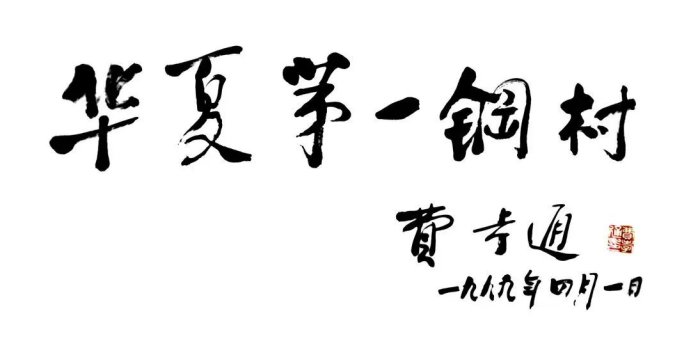 华夏第一钢村
費孝通
一九八九年四月一日